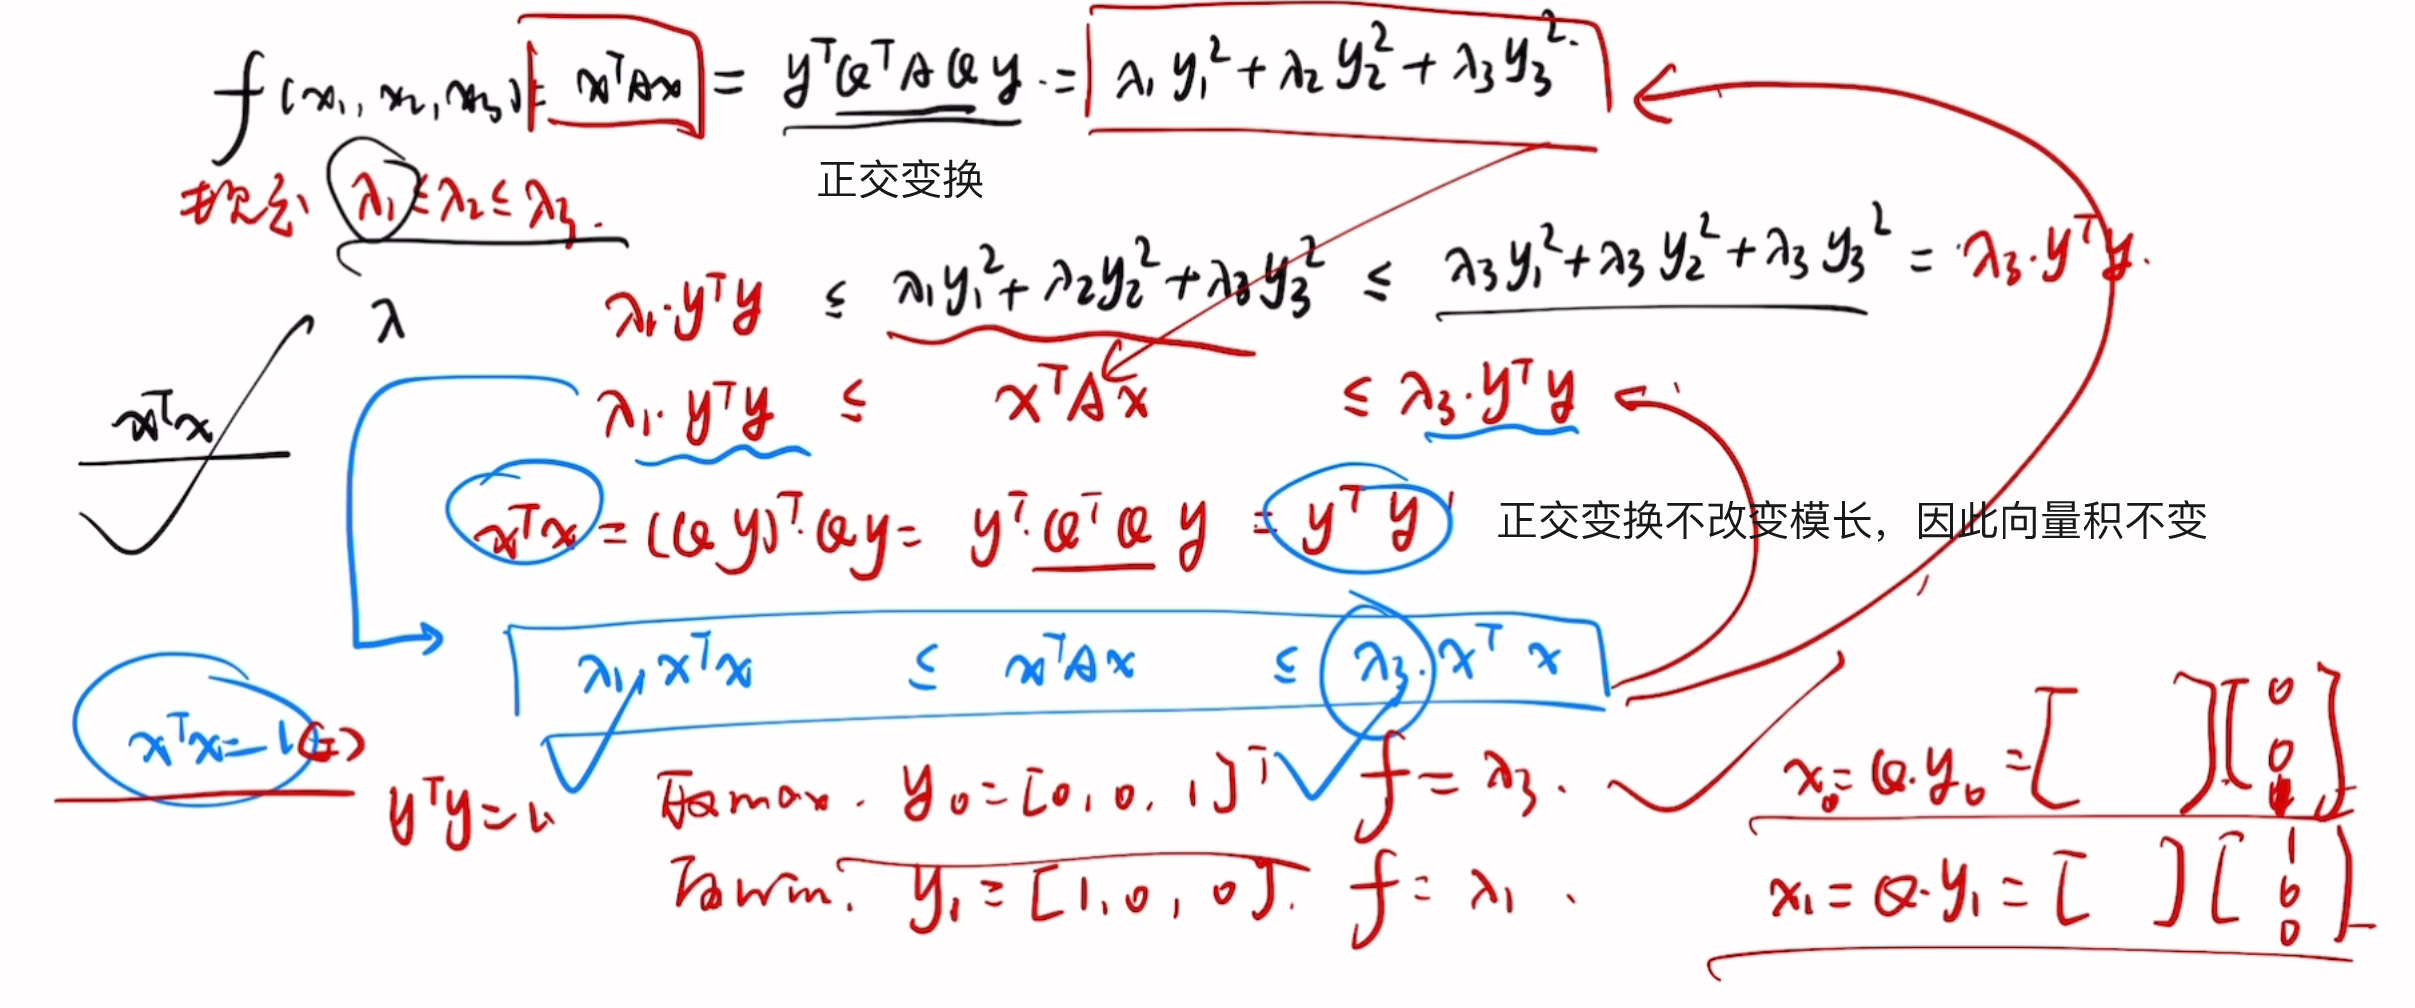 f(x₁, x₂, x₃) = xᵀAx = yᵀQᵀAQy = λ₁y₁² + λ₂y₂² + λ₃y₃²
正交变换
λ₁ ≤ λ₂ ≤ λ₃.
λ₁·yᵀy ≤ λ₁y₁² + λ₂y₂² + λ₃y₃² ≤ λ₃y₁² + λ₃y₂² + λ₃y₃² = λ₃·yᵀy.
λ
λ₁·yᵀy ≤ xᵀAx ≤ λ₃·yᵀy
xᵀx
xᵀx = (Qy)ᵀ·Qy = yᵀ·QᵀQy = yᵀy
正交变换不改变模长，因此向量积不变
λ₁·xᵀx ≤ xᵀAx ≤ λ₃·xᵀx
xᵀx = 1
yᵀy = 1.
max. y₀ = [0, 0, 1]ᵀ f = λ₃.
x₀ = Q·y₀ = [ ] [0 0 1]
min. y₁ = [1, 0, 0]. f = λ₁.
x₁ = Q·y₁ = [ ] [1 0 0]